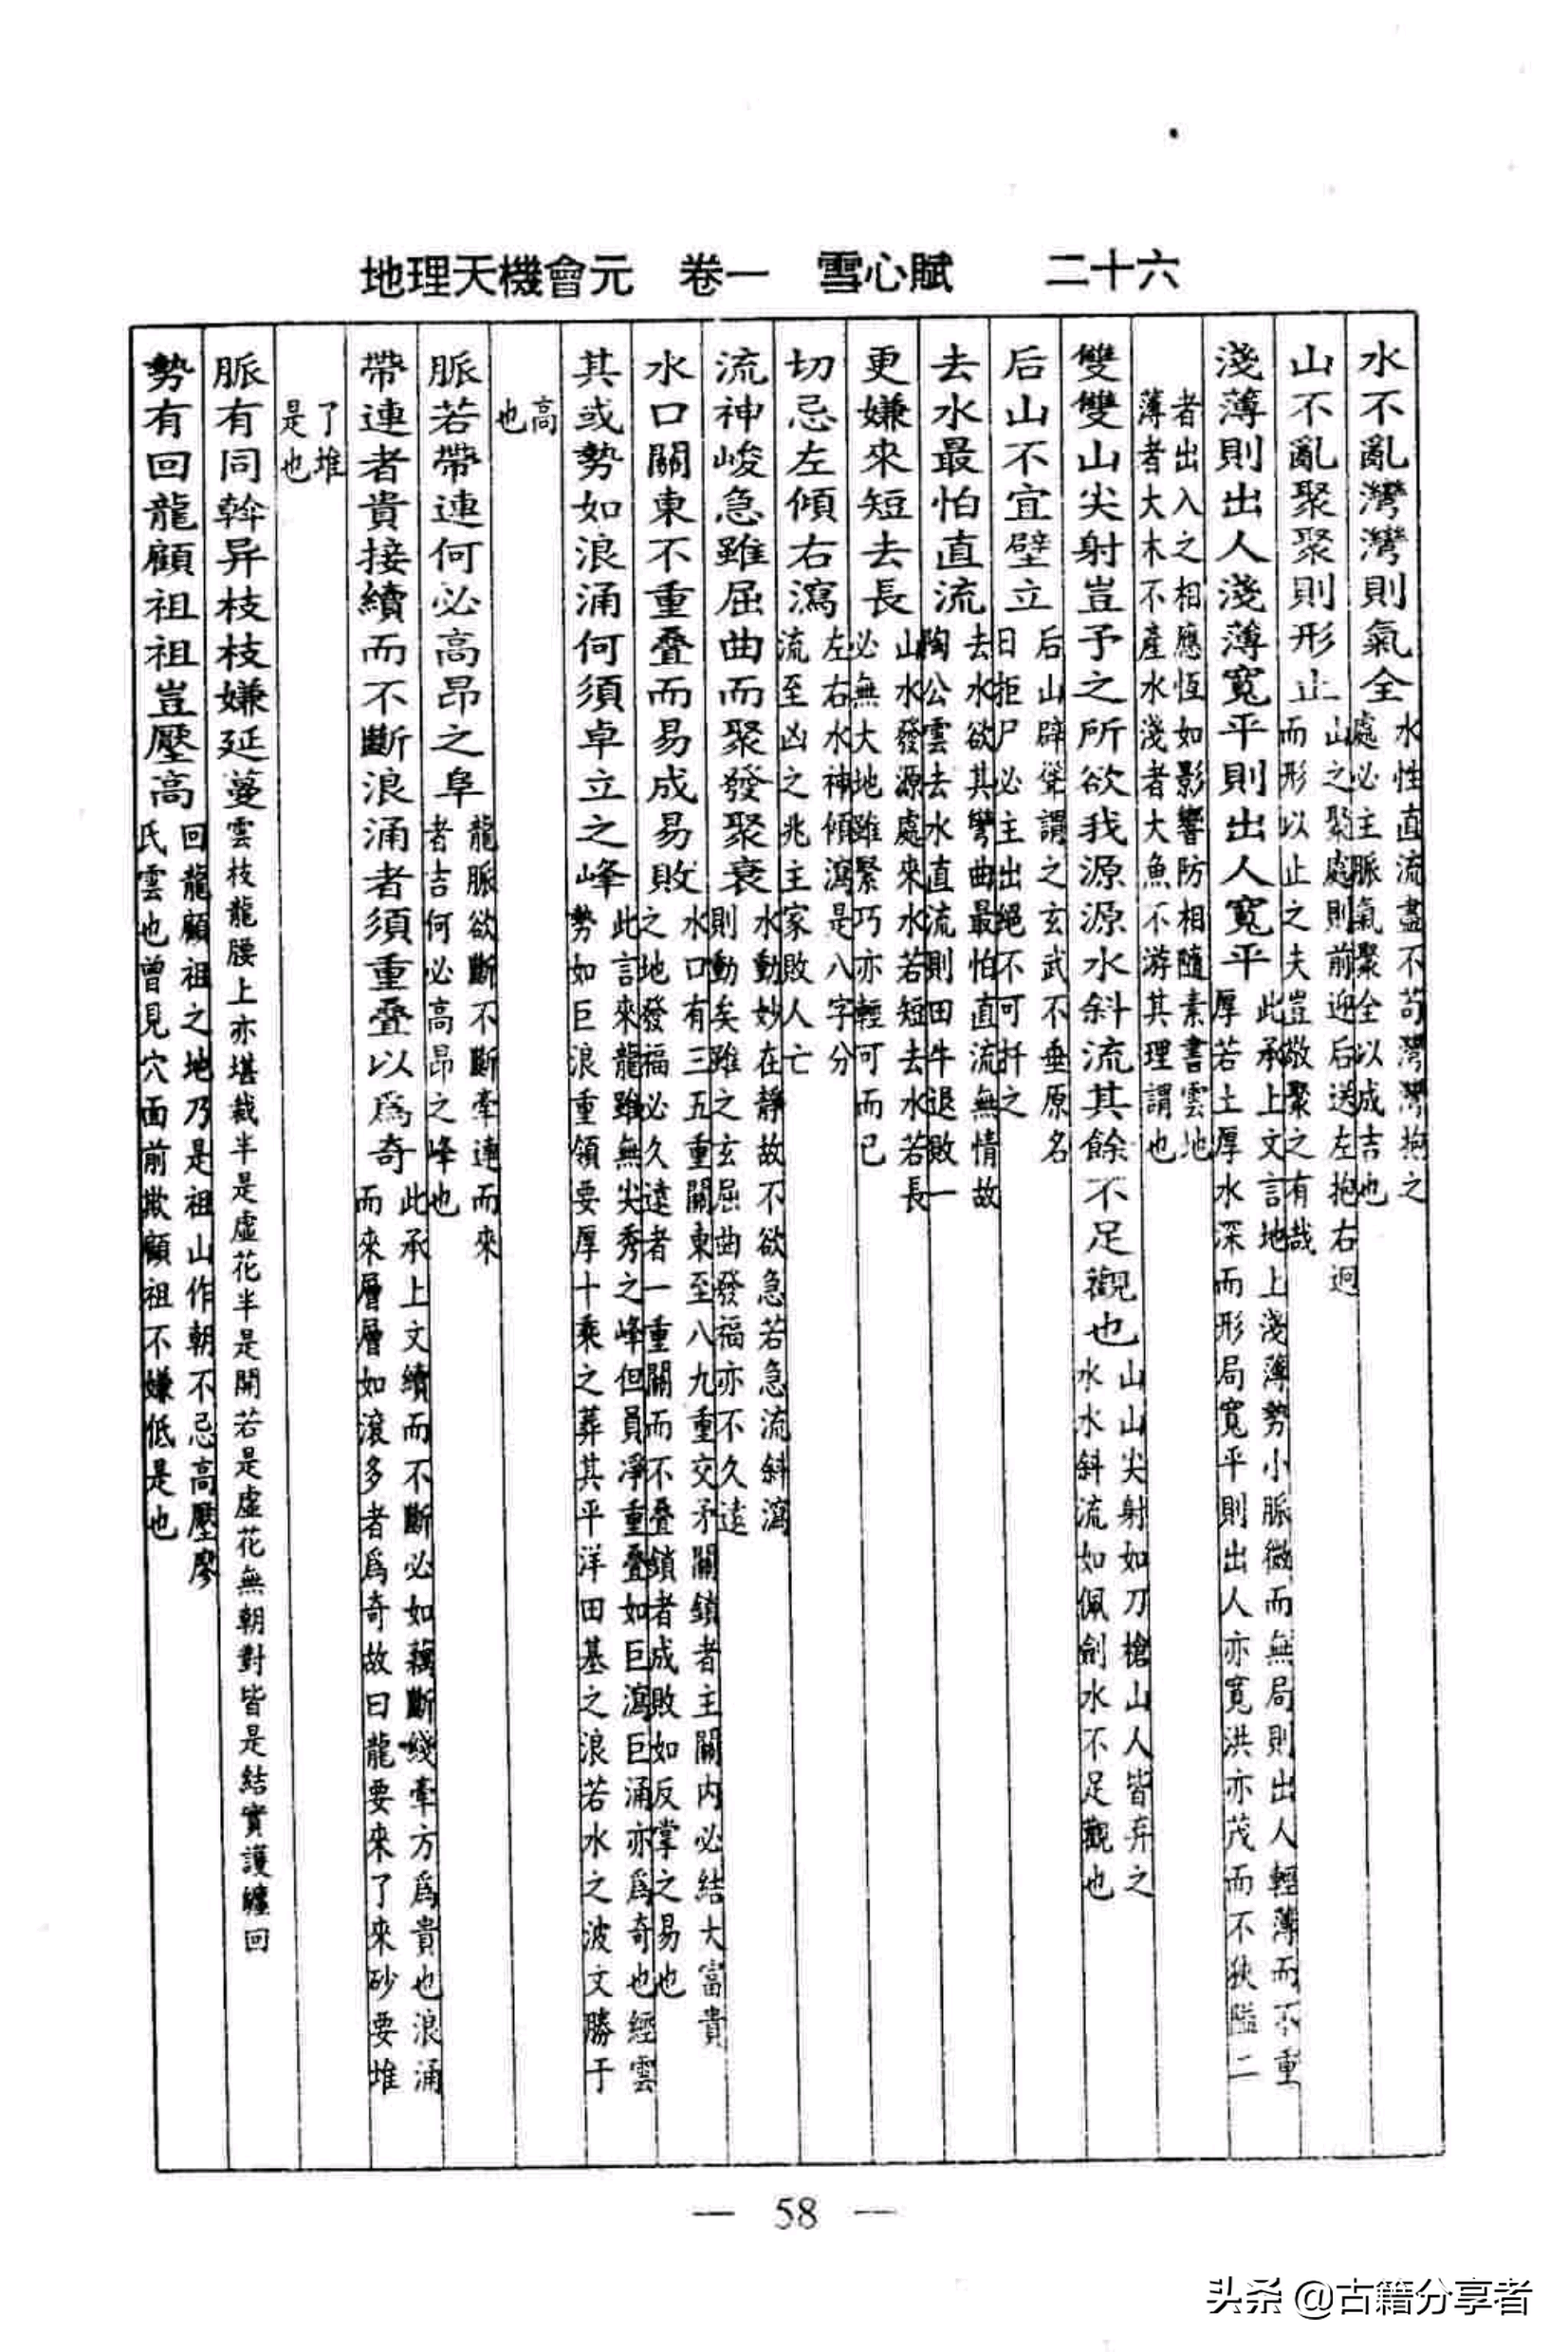 地理天機會元 卷一 雪心賦 二十六
水不亂灣灣則氣全水性直流盡不苟灣灣抱之處必主脈氣聚全以成吉也
山不亂聚聚則形止山之聚處則前迎后送左抱右迴而形以止之夫豈敢聚之有哉
淺薄則出人淺薄寬平則出人寬平此承上文言地上淺薄勢小脈微而無局則出人輕薄而不重厚若土厚水深而形局寬平則出人亦寬洪亦茂而不狹隘二
者出入之相應恆如影響防相隨素書雲地薄者大木不產水淺者大魚不游其理謂也
雙雙山尖射豈予之所欲我源源水斜流其餘不足觀也山山尖射如刀槍山人皆弃之水水斜流如佩劍水不足觀也
后山不宜壁立后山辟聳謂之玄武不垂原名曰拒尸必主出絕不可扦之
去水最怕直流去水欲其彎曲最怕直流無情故陶公雲去水直流則田牛退敗一
更嫌來短去長山水發源處來水若短去水若長必無大地雖緊巧亦輕可而已
切忌左傾右瀉左右水神傾瀉是八字分流至凶之兆主家敗人亡
流神峻急雖屈曲而聚發聚衰水動妙在靜故不欲急若急流斜瀉則動矣雖之玄屈曲發福亦不久遠
水口關東不重叠而易成易敗水口有三五重關東至八九重交矛關鎖者主關內必結大富貴之地發福必久遠者一重關而不叠鎖者成敗如反掌之易也
其或勢如浪涌何須卓立之峰此言來龍雖無尖秀之峰但員淨重叠如巨瀉巨涌亦爲奇也經雲勢如巨浪重領要厚十乘之葬其平洋田基之浪若水之波文勝于
高也
脈若帶連何必高昂之阜龍脈欲斷不斷牽連而來者吉何必高昂之峰也
帶連者貴接續而不斷浪涌者須重叠以爲奇此承上文續而不斷必如藕斷綫牽方爲貴也浪涌而來層層如滾多者爲奇故曰龍要來了來砂要堆
了堆是也
脈有同斡异枝枝嫌延蔓雲枝龍腰上亦堪裁半是虛花半是開若是虛花無朝對皆是結實護纏回
勢有回龍顧祖祖豈壓高回龍顧祖之地乃是祖山作朝不忌高壓廖氏雲也曾見穴面前欺顧祖不嫌低是也
— 58 —
头条 @古籍分享者